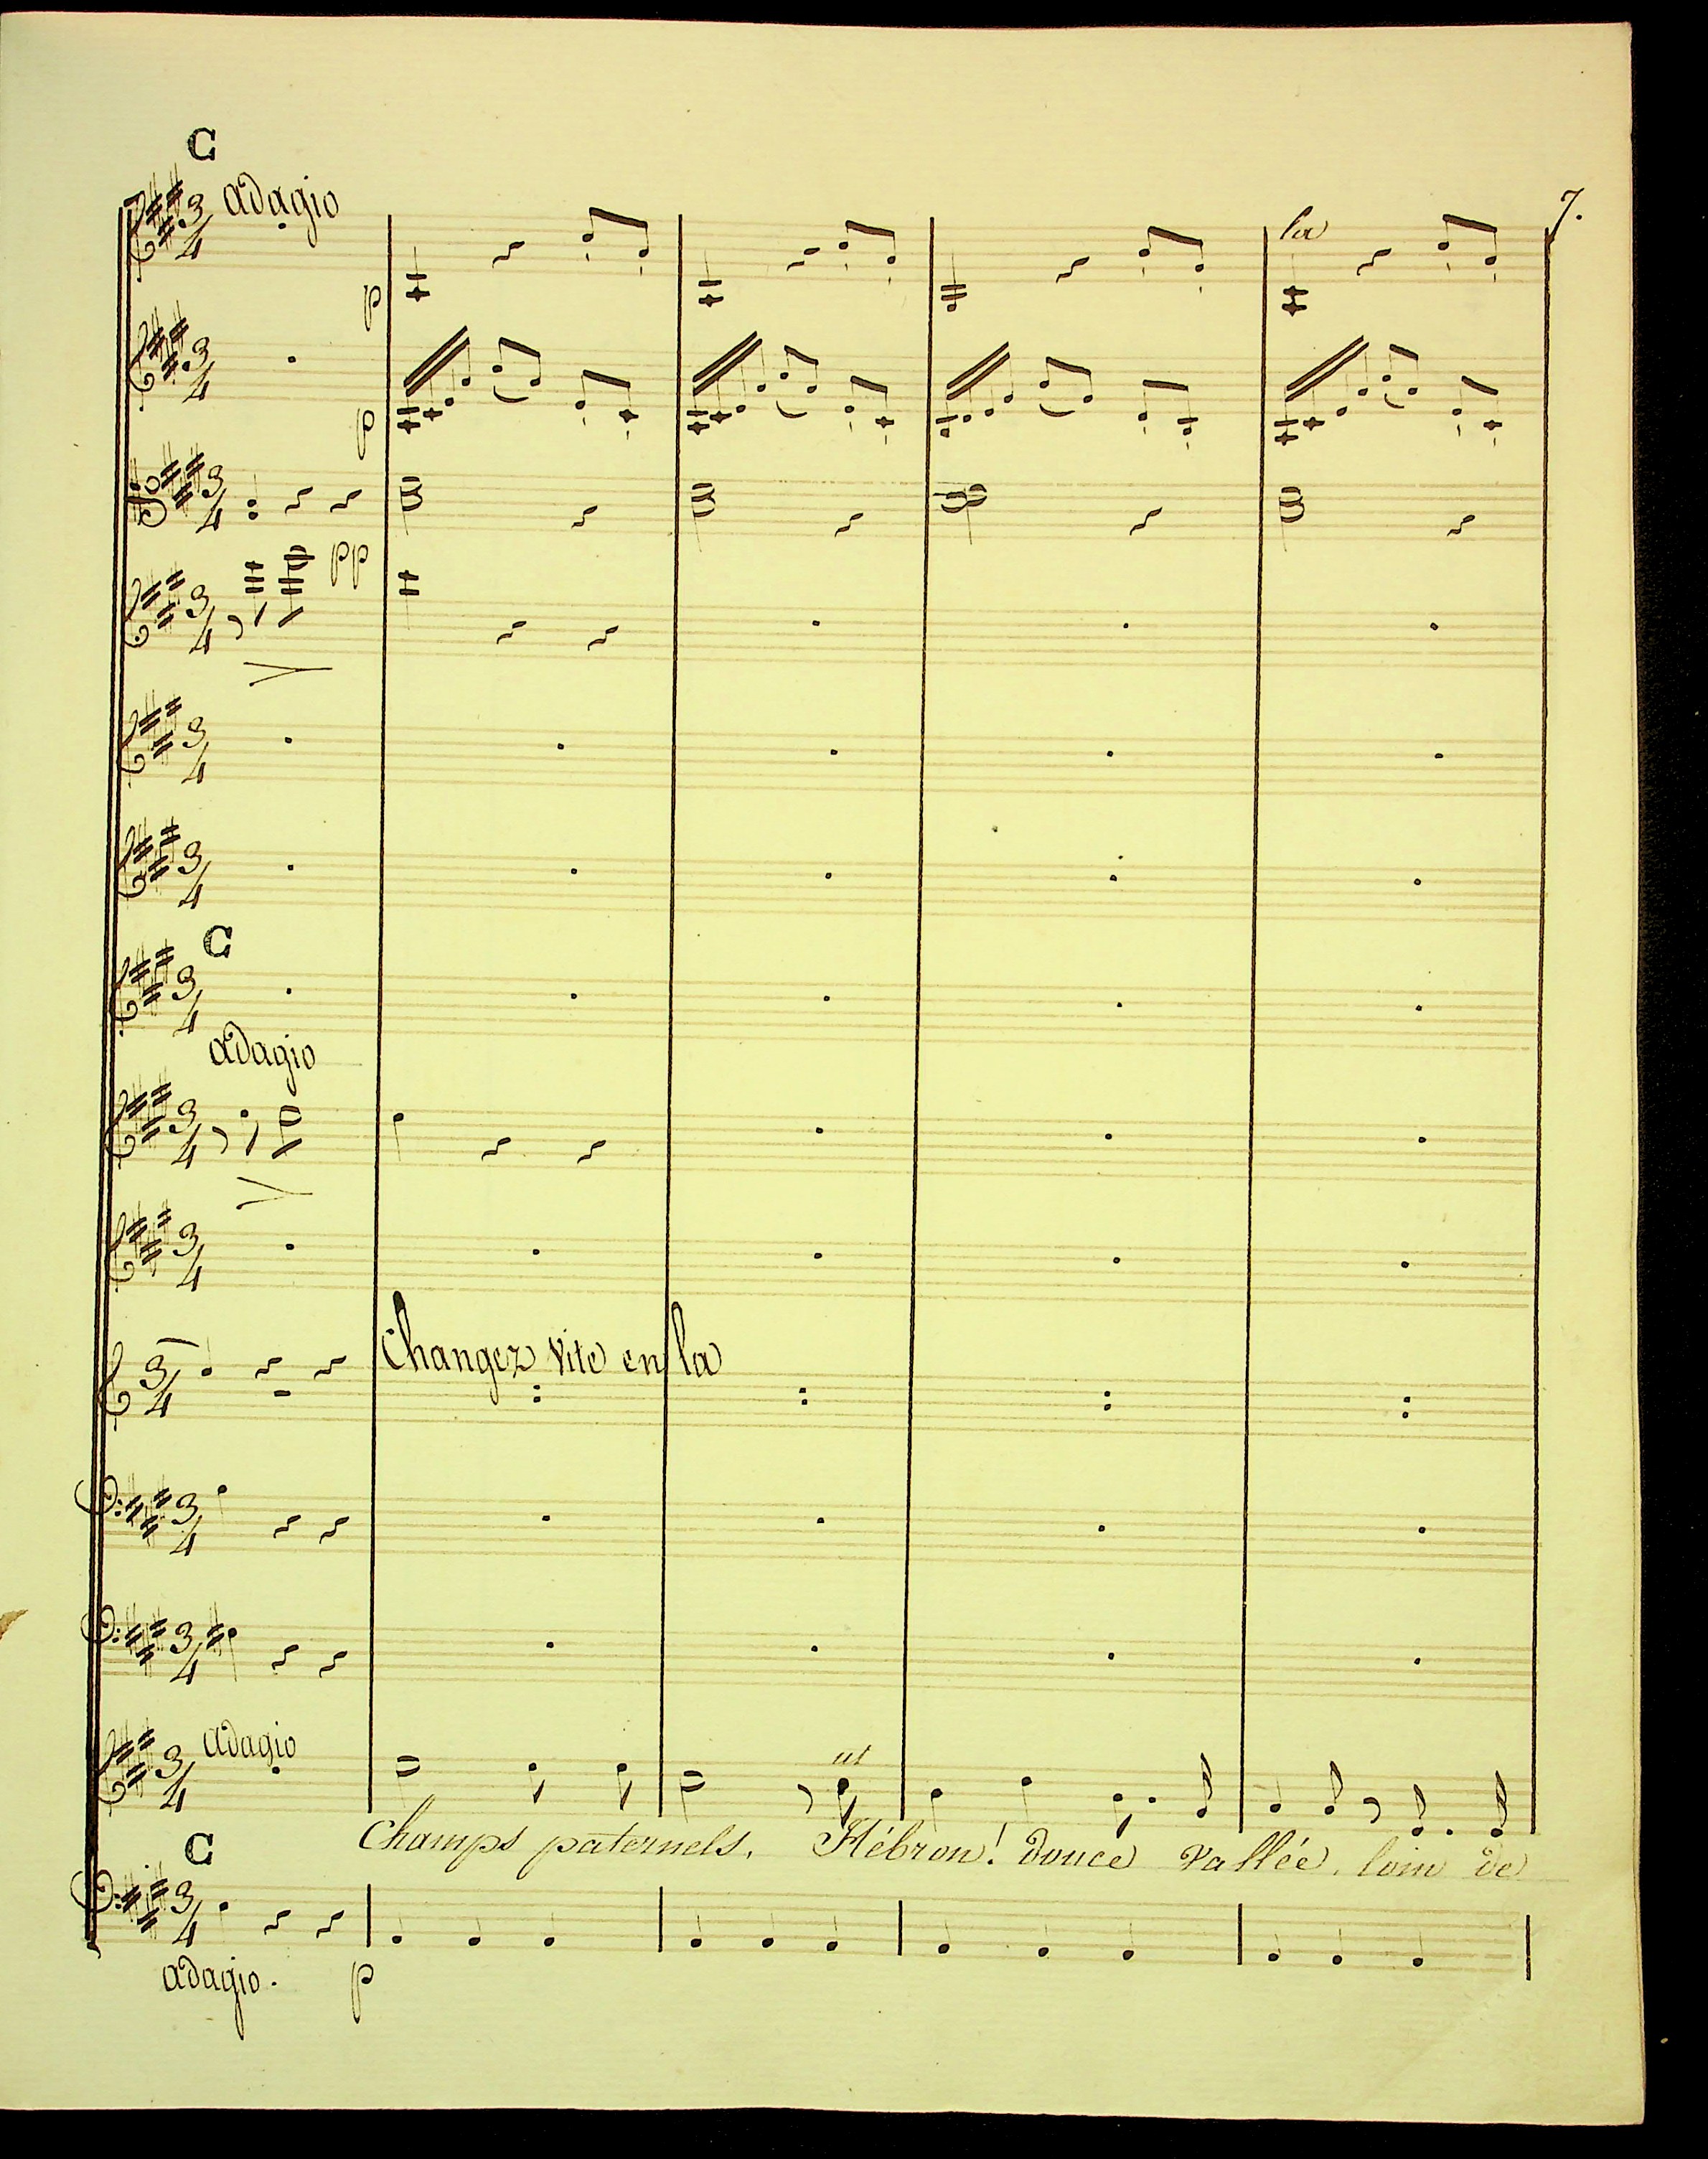 C
adagio
7.
la
p
p
pp
C
adagio
Changez vite en la
adagio
ut
Champs paternels, Hébron! douce vallée, loin de
C
adagio.
p